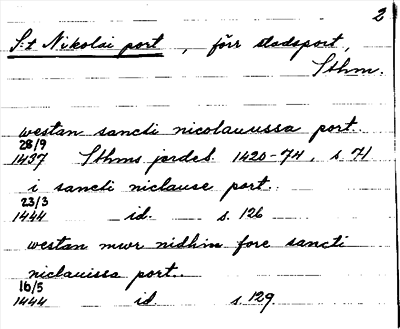 2
S:t Nikolai port, förr stadsport,
Sthm.
westan sancti nicolauussa port.
28/9
1437 Sthms jordeb. 1420-74, s. 71
i sancti niclause port.
23/3
1444 id. s. 126
westan mwr nidhin fore sancti
niclauissa port.
16/5
1444 id s. 129.